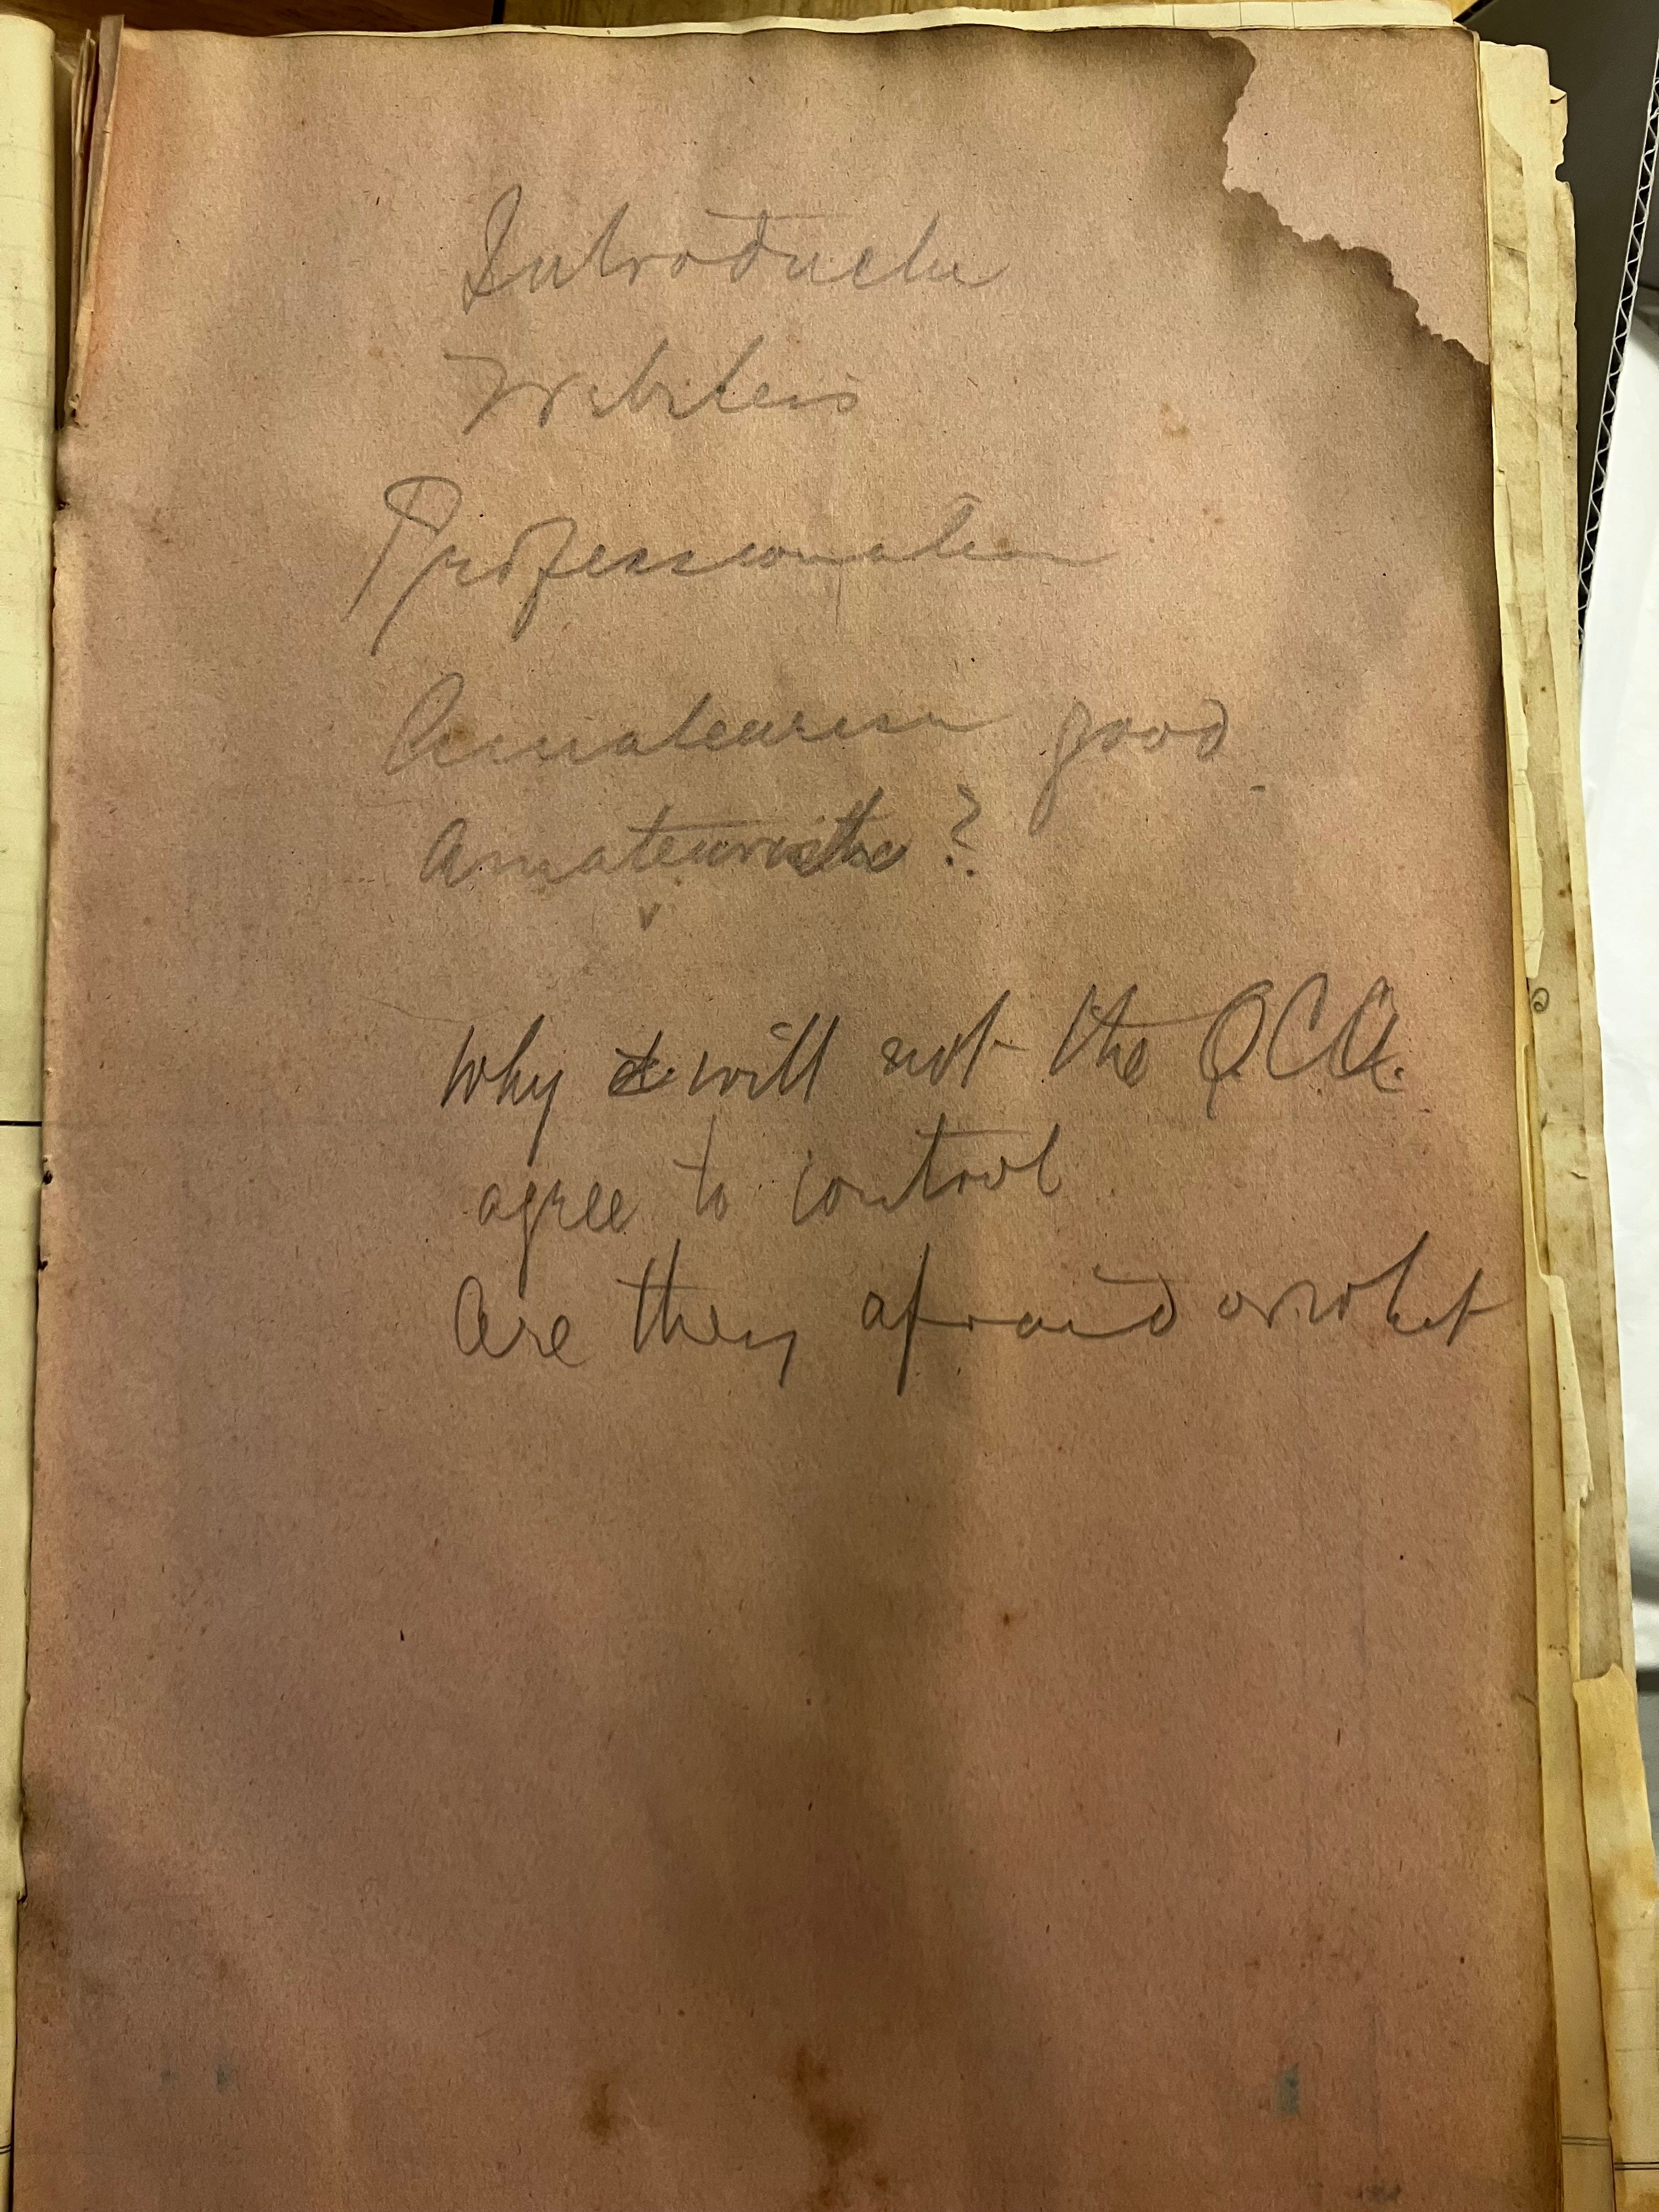 Introducti
Websters
Professionalism
Amateurism good
Amateuristic ?
Why will not the Q.C.A.
agree to control
Are they afraid or what